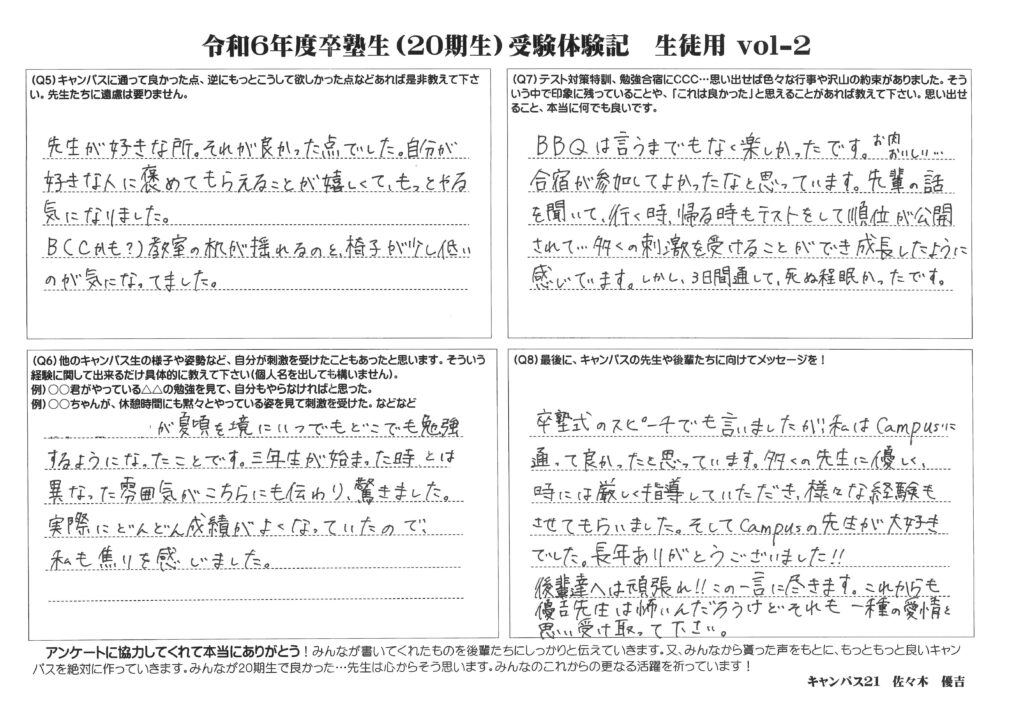 令和6年度卒塾生（20期生）受験体験記　生徒用 vol-2
（Q5）キャンパスに通って良かった点、逆にもっとこうして欲しかった点などあれば是非教えて下さ
い。先生たちに遠慮は要りません。
先生が好きな所。それが良かった点でした。自分が
好きな人に褒めてもらえることが嬉しくて、もっとやる
気になりました。
BCC(かも?)教室の机が揺れるのと、椅子が少し低い
のが気になってました。
（Q6）他のキャンパス生の様子や姿勢など、自分が刺激を受けたこともあったと思います。そういう
経験に関して出来るだけ具体的に教えて下さい（個人名を出しても構いません）。
例）○○君がやっている△△の勉強を見て、自分もやらなければと思った。
例）○○ちゃんが、休憩時間にも黙々とやっている姿を見て刺激を受けた。などなど
が夏頃を境にいつでもどこでも勉強
するようになったことです。三年生が始まった時とは
異なった雰囲気がこちらにも伝わり、驚きました。
実際にどんどん成績がよくなっていたので、
私も焦りを感じました。
（Q7）テスト対策特訓、勉強合宿にCCC…思い出せば色々な行事や沢山の約束がありました。そう
いう中で印象に残っていることや、「これは良かった」と思えることがあれば教えて下さい。思い出せ
ること、本当に何でも良いです。
BBQは言うまでもなく楽しかったです。お肉おいしい…
合宿が参加してよかったなと思っています。先輩の話
を聞いて、行く時、帰る時もテストをして順位が公開
されて…多くの刺激を受けることができ成長したように
感じています。しかし、3日間通して、死ぬ程眠かったです。
（Q8）最後に、キャンパスの先生や後輩たちに向けてメッセージを！
卒塾式のスピーチでも言いましたが、私はCampusに
通って良かったと思っています。多くの先生に優しく、
時には厳しく指導していただき、様々な経験も
させてもらいました。そしてCampusの先生が大好き
でした。長年ありがとうございました!!
後輩達へは頑張れ!!この一言に尽きます。これからも
優吉先生は怖いんだろうけどそれも一種の愛情と
思い受け取って下さい。
アンケートに協力してくれて本当にありがとう！みんなが書いてくれたものを後輩たちにしっかりと伝えていきます。又、みんなから貰った声をもとに、もっともっと良いキャン
パスを絶対に作っていきます。みんなが20期生で良かった…先生は心からそう思います。みんなのこれからの更なる活躍を祈っています！
キャンパス21　佐々木　優吉